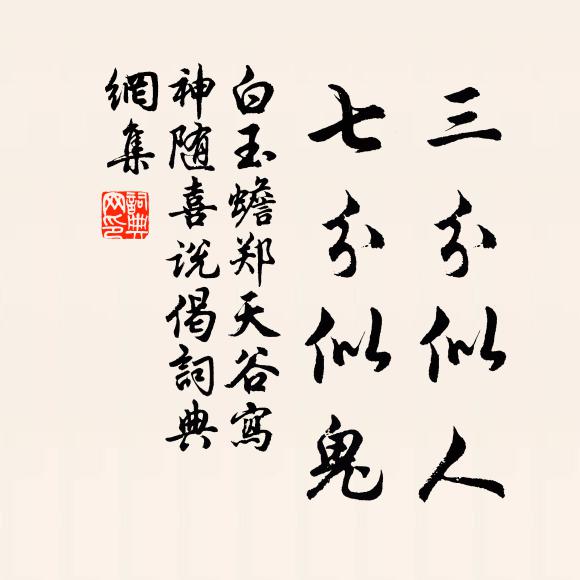 三分似人
七分似鬼
白玉蟾郑天谷寫
神随喜说偈詞典
網集
詞典
网印